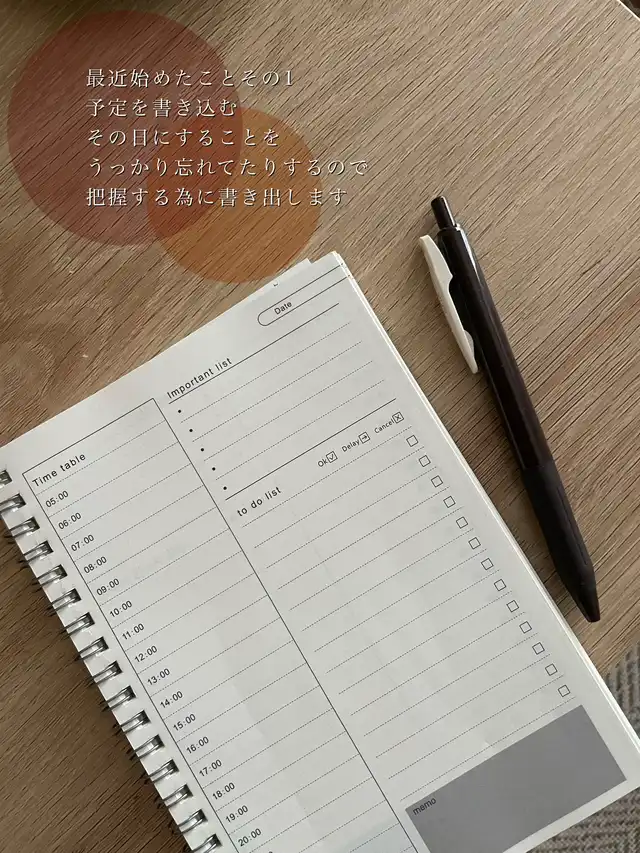 最近始めたことその1
予定を書き込む
その日にすることを
うっかり忘れてたりするので
把握する為に書き出します
Date
Important list
Ok Delay Cancel
to do list
Time table
05:00
06:00
07:00
08:00
09:00
10:00
11:00
12:00
13:00
14:00
15:00
16:00
17:00
18:00
19:00
20:00
memo